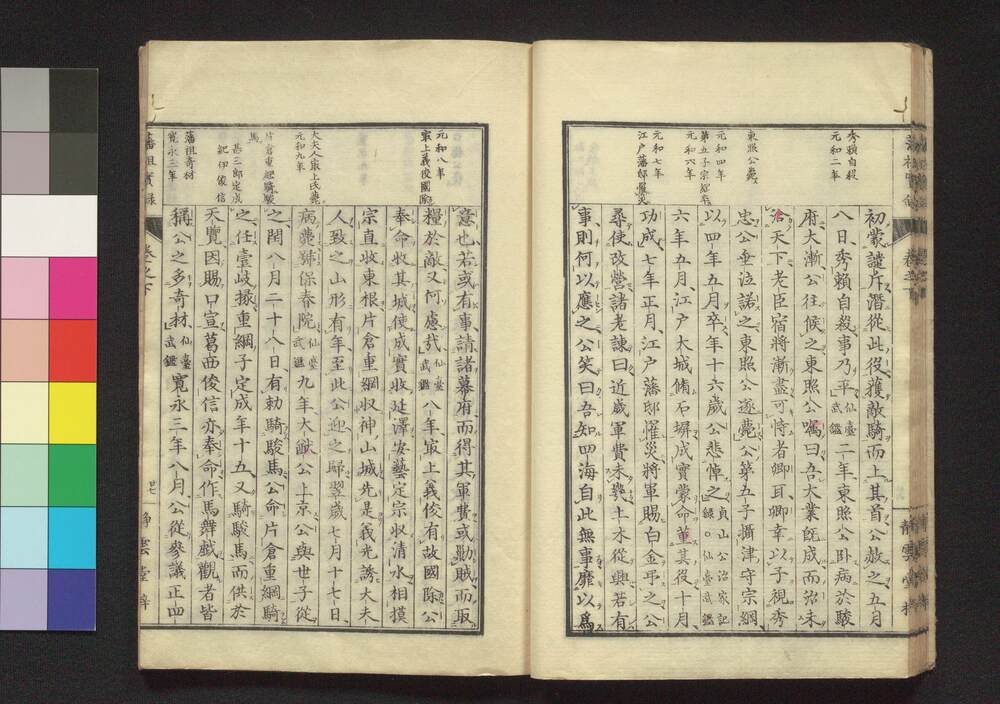 秀頼自殺
元和二年
東照公薨
元和四年
第五子宗綱卒
元和六年
元和七年
江戸藩邸罹災
初蒙譴斥潛從此役獲敵騎而上其首公赦之五月
八日秀頼自殺事乃平仙臺武鑑二年東照公臥病於駿
府大漸公往候之東照公囑曰吾大業既成而治未
洽天下老臣宿將漸盡可恃者卿耳卿幸以子視秀
忠公垂泣諾之東照公遂薨公第五子攝津守宗綱
以四年五月卒年十六歲公悲悼之貞山公治家記錄○仙臺武鑑
六年五月江戸大城脩石塀成實蒙命董其役十月
功成七年正月江戸藩邸罹災將軍賜白金弔之公
尋使改營諸老諫曰近歲軍費未幾土木從興若有
事則何以應之公笑曰吾知四海自此無事靡以為
元和八年
最上義俊國除
大夫人最上氏薨
元和九年
片倉重綱騎駿馬
甚三郎定成
紀伊俊信
藩祖奇材
寬永三年
意也若或有事請諸幕府而得其軍費或勦賊而取
糧於敵又何慮哉仙臺武鑑八年最上義俊有故國除公
奉命收其城使成實收延澤安藝定宗收清水相摸
宗直收東根片倉重綱收神山城先是義光誘大夫
人致之山形有年至此公迎之歸翌歲七月十七日
病薨號保春院仙臺武鑑九年大猷公上京公與世子從
之閏八月二十八日有勅騎駿馬公命片倉重綱騎
之任壹岐掾重綱子定成年十五又騎駿馬而供於
天覽因賜口宣葛西俊信亦奉命作馬舞戲觀者皆
稱公之多奇材仙臺武鑑寬永三年八月公從參議正四
藩祖實錄
卷之下
廿七
靜雲堂梓